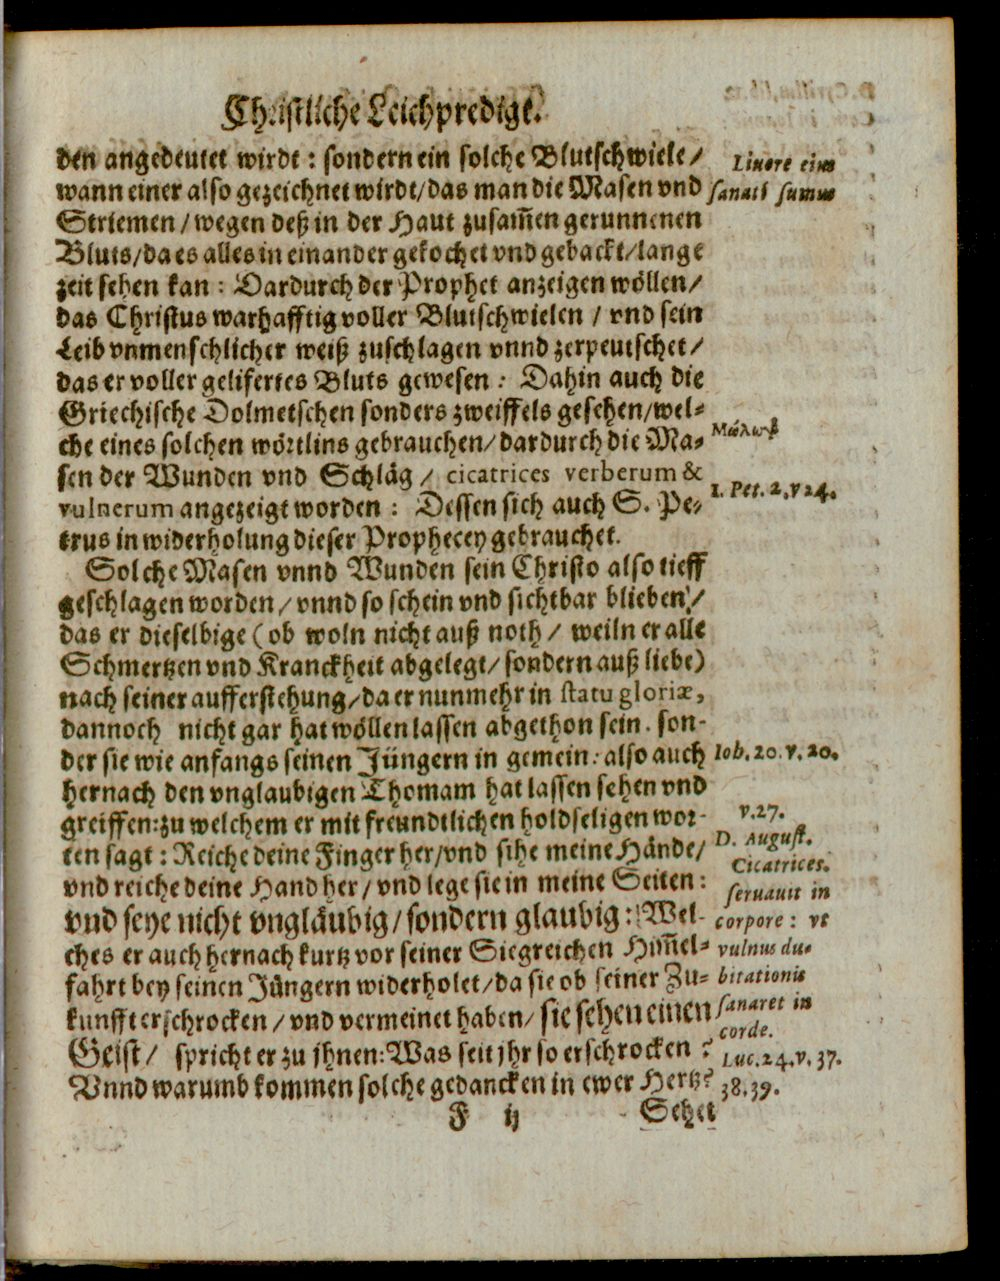 Christliche Leichpredigt.
den angedeutet wirdt: sondern ein solche Blutschwiele/
wann einer also gezeichnet wirdt/das man die Masen vnd
Striemen/wegen deß in der Haut zusam̃en gerunnenen
Bluts/da es alles in einander gekochet vnd gebackt/lange
zeit sehen kan: Dardurch der Prophet anzeigen wöllen/
das Christus warhafftig voller Blutschwielen / vnd sein
Leib vnmenschlicher weiß zuschlagen vnnd zerpeutschet/
das er voller gelifertes Bluts gewesen: Dahin auch die
Griechische Dolmetschen sonders zweiffels gesehen/wel-
che eines solchen wörtlins gebrauchen/dardurch die Ma-
sen der Wunden vnd Schläg/ cicatrices verberum &
vulnerum angezeigt worden: Dessen sich auch S. Pe-
trus in widerholung dieser Prophecey gebrauchet.
Solche Masen vnnd Wunden sein Christo also tieff
geschlagen worden/vnnd so schein vnd sichtbar blieben/
das er dieselbige (ob woln nicht auß noth/ weiln er alle
Schmertzen vnd Kranckheit abgelegt/sondern auß liebe)
nach seiner aufferstehung/da er nunmehr in statu gloriæ,
dannoch nicht gar hat wöllen lassen abgethon sein. son-
der sie wie anfangs seinen Jüngern in gemein: also auch
hernach den vnglaubigen Thomam hat lassen sehen vnd
greiffen: zu welchem er mit freundtlichen holdseligen wor-
ten sagt: Reiche deine Finger her/vnd sihe meine Hände/
vnd reiche deine Hand her/vnd lege sie in meine Seiten:
vnd seye nicht vngläubig/sondern glaubig: Wel-
ches er auch hernach kurtz vor seiner Siegreichen Him̃el-
fahrt bey seinen Jüngern widerholet/da sie ob seiner Zu-
kunfft erschrocken/vnd vermeinet haben/sie sehen einen
Geist/ spricht er zu jhnen: Was seit jhr so erschrocken?
Vnnd warumb kommen solche gedancken in ewer Hertz?
F ij
Sehet
Liuore eius
sanati sumus
1. Pet. 2. v 24.
Ioh. 20. v. 20.
v. 27.
D. August.
Cicatrices
seruauit in
corpore: vt
vulnus du-
bitationis
sanaret in
corde.
Luc. 24. v. 37.
38. 39.